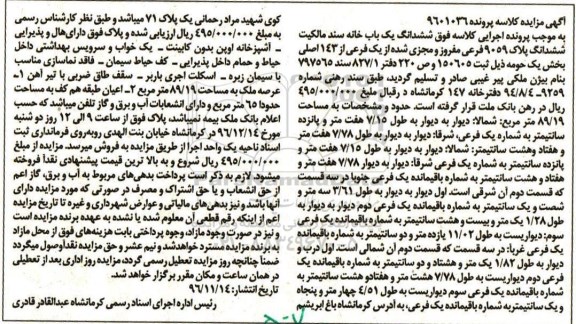 آگهی مزایده کلاسه پرونده ۹۶۰۱۰۳۶
به موجب پرونده اجرایی کلاسه فوق ششدانگ یک باب خانه سند مالکیت
ششدانگ پلاک ۹۰۵۹ فرعی مفروز و مجزی شده از یک فرعی از ۱۴۳ اصلی
بخش یک حومه ذیل ثبت ۱۵۰۶۰۵ ص ۲۲۰ دفتر ۸۲۷/۱ سند ۷۹۷۵۶۵
بنام بیژن ملکی پیر غیبی صادر و تسلیم گردید، طبق سند رهنی شماره
۹۲۵۹ـ ۹۴/۸/۴ دفترخانه ۱۴۷ کرمانشاه در قبال مبلغ ۴۹۵/۰۰۰/۰۰۰
ریال در رهن بانک ملت قرار گرفته است. حدود و مشخصات به مساحت
۸۹/۱۹ متر مربع: شمالا: دیوار به دیوار به طول ۷/۱۵ هفت متر و پانزده
سانتیمتر به شماره یک فرعی، شرقا: دیوار به دیوار به طول ۷/۷۸ هفت متر
و هفتاد وهشت سانتیمتر: شمالا: دیوار به دیوار به طول ۷/۱۵ هفت متر و
پانزده سانتیمتر به شماره یک فرعی شرقا: دیوار به دیوار ۷/۷۸ هفت متر و
هفتاد و هشت سانتیمتر به شماره باقیمانده یک فرعی جنوبا در سه قسمت
که قسمت دوم آن شرقی است. اول دیوار به دیوار به طول ۳/۶۱ سه متر و
شصت و یک سانتیمتر به شماره باقیمانده یک فرعی دوم دیوار به دیوار به
طول ۱/۲۸ یک متر و بیست و هشت سانتیمتر به شماره باقیمانده یک فرعی
سوم: دیواریست به طول ۱۱/۰۲ یازده متر و دو سانتیمتر به شماره باقیمانده
یک فرعی غربا: در سه قسمت که قسمت دوم آن شمالی است. اول درب و
دیوار به طول ۱/۸۲ یک متر و هشتاد و دو سانتیمتر به شماره باقیمانده یک
فرعی دوم دیواریست به طول ۷/۷۸ هشت متر و هفتادو هشت سانتیمتر به
شماره باقیمانده یک فرعی سوم دیواریست به طول ۴/۵۱ چهار متر و پنجاه
و یک سانتیمتر به شماره باقیمانده یک فرعی، به آدرس کرمانشاه باغ ابریشم
کوی شهید مراد رحمانی یک پلاک ۷۱ میباشد و طبق نظر کارشناس رسمی
به مبلغ ۴۹۵/۰۰۰/۰۰۰ ریال ارزیابی شده و پلاک فوق دارای هال و پذیرایی
ـ آشپزخانه اوپن بدون کابینت ـ یک خواب و سرویس بهداشتی داخل
حیاط و حمام داخل پذیرایی ـ کف حیاط سیمان ـ فاقد نماسازی مناسب
با سیمان زبره ـ اسکلت آجری باربر ـ سقف طاق ضربی با تیر آهن ۱ـ
عرصه به مساحت ۸۹/۱۹ متر مربع ۲ـ اعیان طبقه هم کف به مساحت
حدودا ۶۵ متر مربع و دارای انشعابات آب و برق و گاز تلفن میباشد که حسب
اعلام بانک ملک بیمه نمیباشد، پلاک فوق از ساعت ۹ الی ۱۲ روز دو شنبه
مورخ ۹۶/۱۲/۱۴ در کرمانشاه خیابان بنت الهدی روبه‌روی فرمانداری ثبت
اسناد ناحیه یک واحد اجرا از طریق مزایده به فروش میرسد. مزایده از مبلغ
۴۹۵/۰۰۰/۰۰۰ ریال شروع و به بالا ترین قیمت پیشنهادی نقدا فروخته
میشود. لازم به ذکر است پرداخت بدهی‌های مربوط به آب و برق، گاز اعم
از حق انشعاب و یا حق اشتراک و مصرف در صورتی که مورد مزایده دارای
آنها باشد و نیز بدهی‌های مالیاتی و عوارض شهرداری و غیره تا تاریخ مزایده
اعم از اینکه رقم قطعی آن معلوم شده یا نشده به عهده برنده مزایده است
و نیز در صورت وجود مازاد، وجوه پرداختی بابت هزینه‌های فوق از محل مازاد
به برنده مزایده مسترد خواهد شد و نیم عشر و حق مزایده نقدا وصول میگردد
ضمناً چنانچه روز مزایده تعطیل رسمی گردد، مزایده روز اداری بعد از تعطیلی
در همان ساعت و مکان مقرر برگزار خواهد شد.
تاریخ انتشار: ۹۶/۱۱/۱۴
رئیس اداره اجرای اسناد رسمی کرمانشاه عبدالقادر قادری